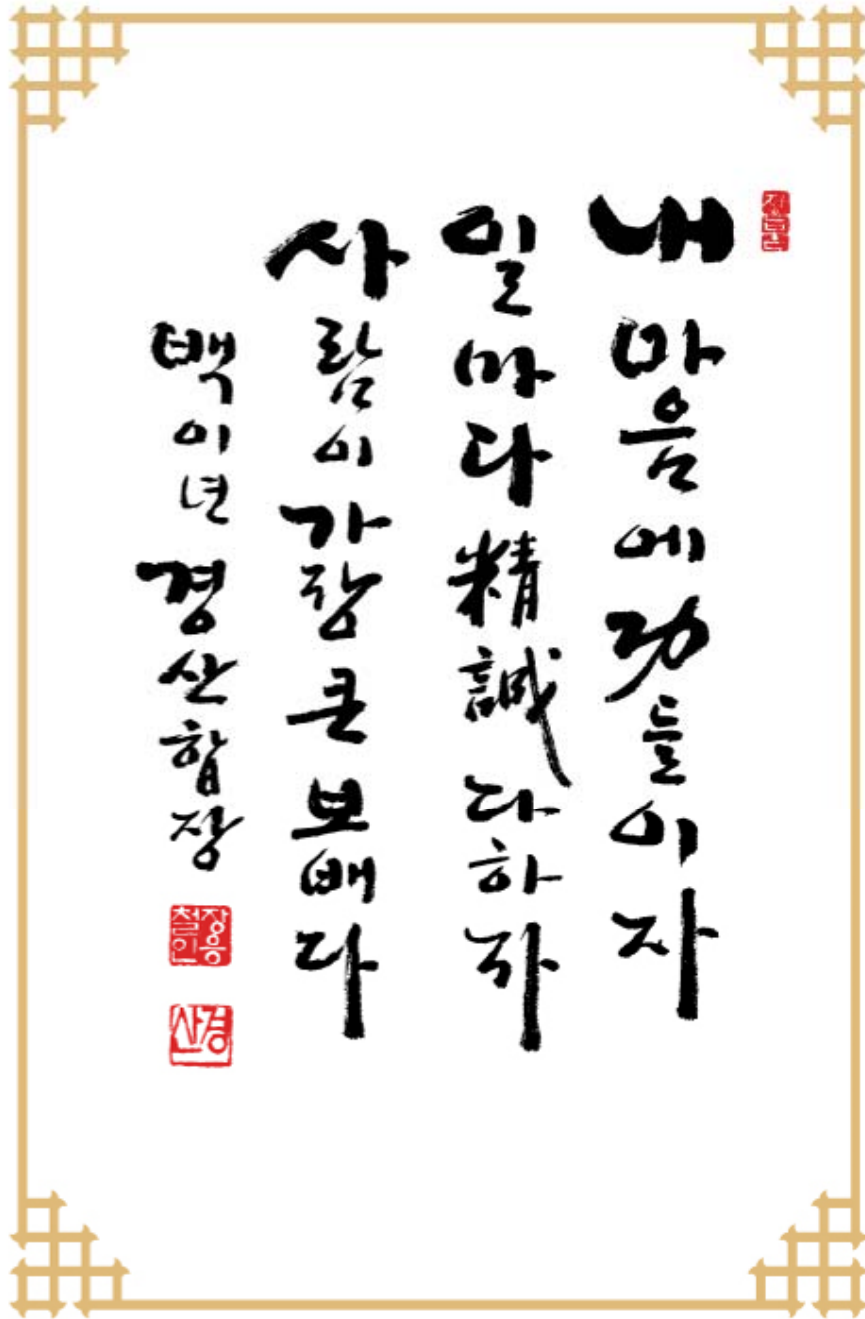 내 마음에 功들이자
일마다 精誠 다하자
사람이 가장 큰 보배다
백이년 경산 합장
장응철인
경산